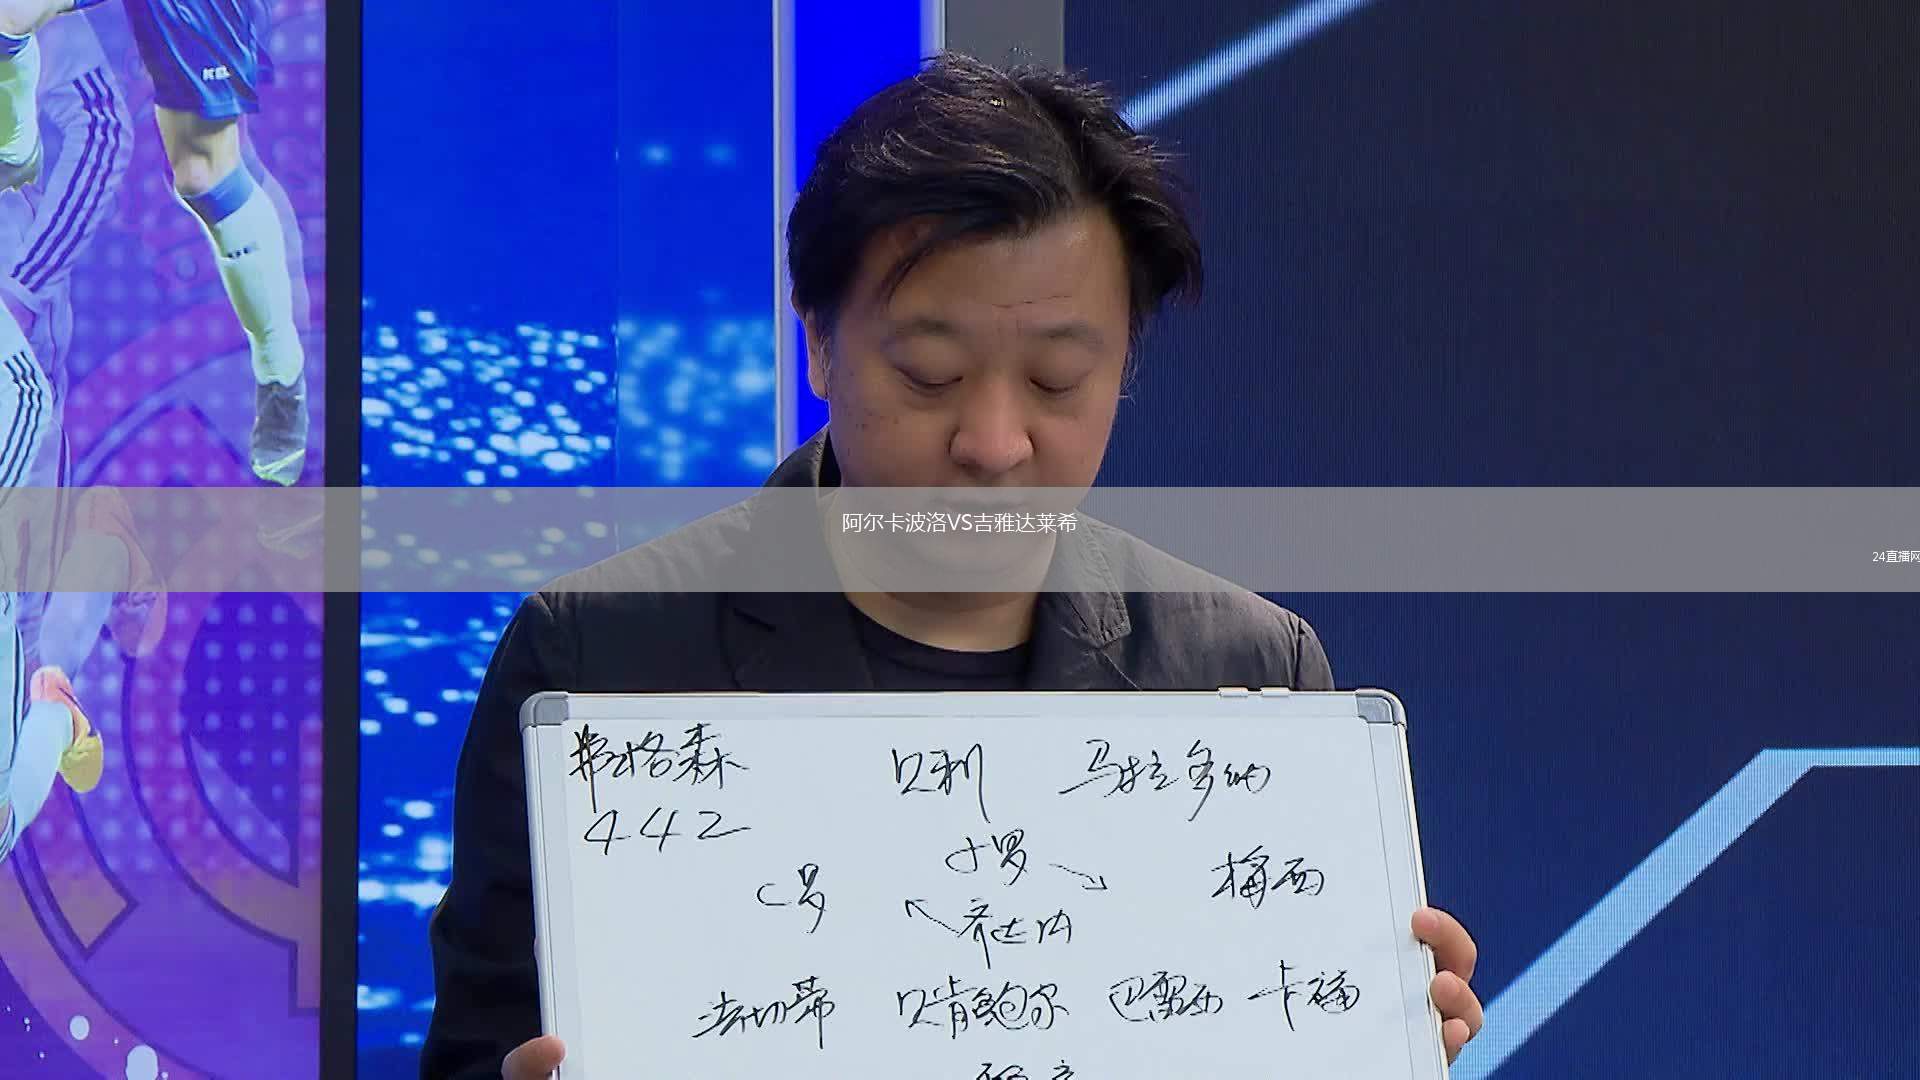 阿尔卡波洛VS吉雅达莱希
24直播网
弗格森 贝利 马拉多纳
442
小罗
C罗 梅西
齐达内
法切蒂 贝肯鲍尔 巴雷西 卡福